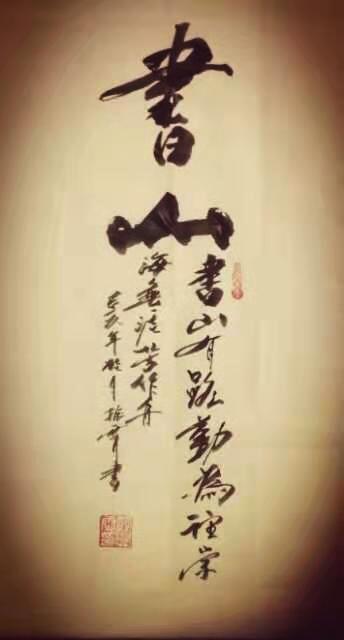 書山
書山有路勤為徑学
海無涯苦作舟
亥年月書